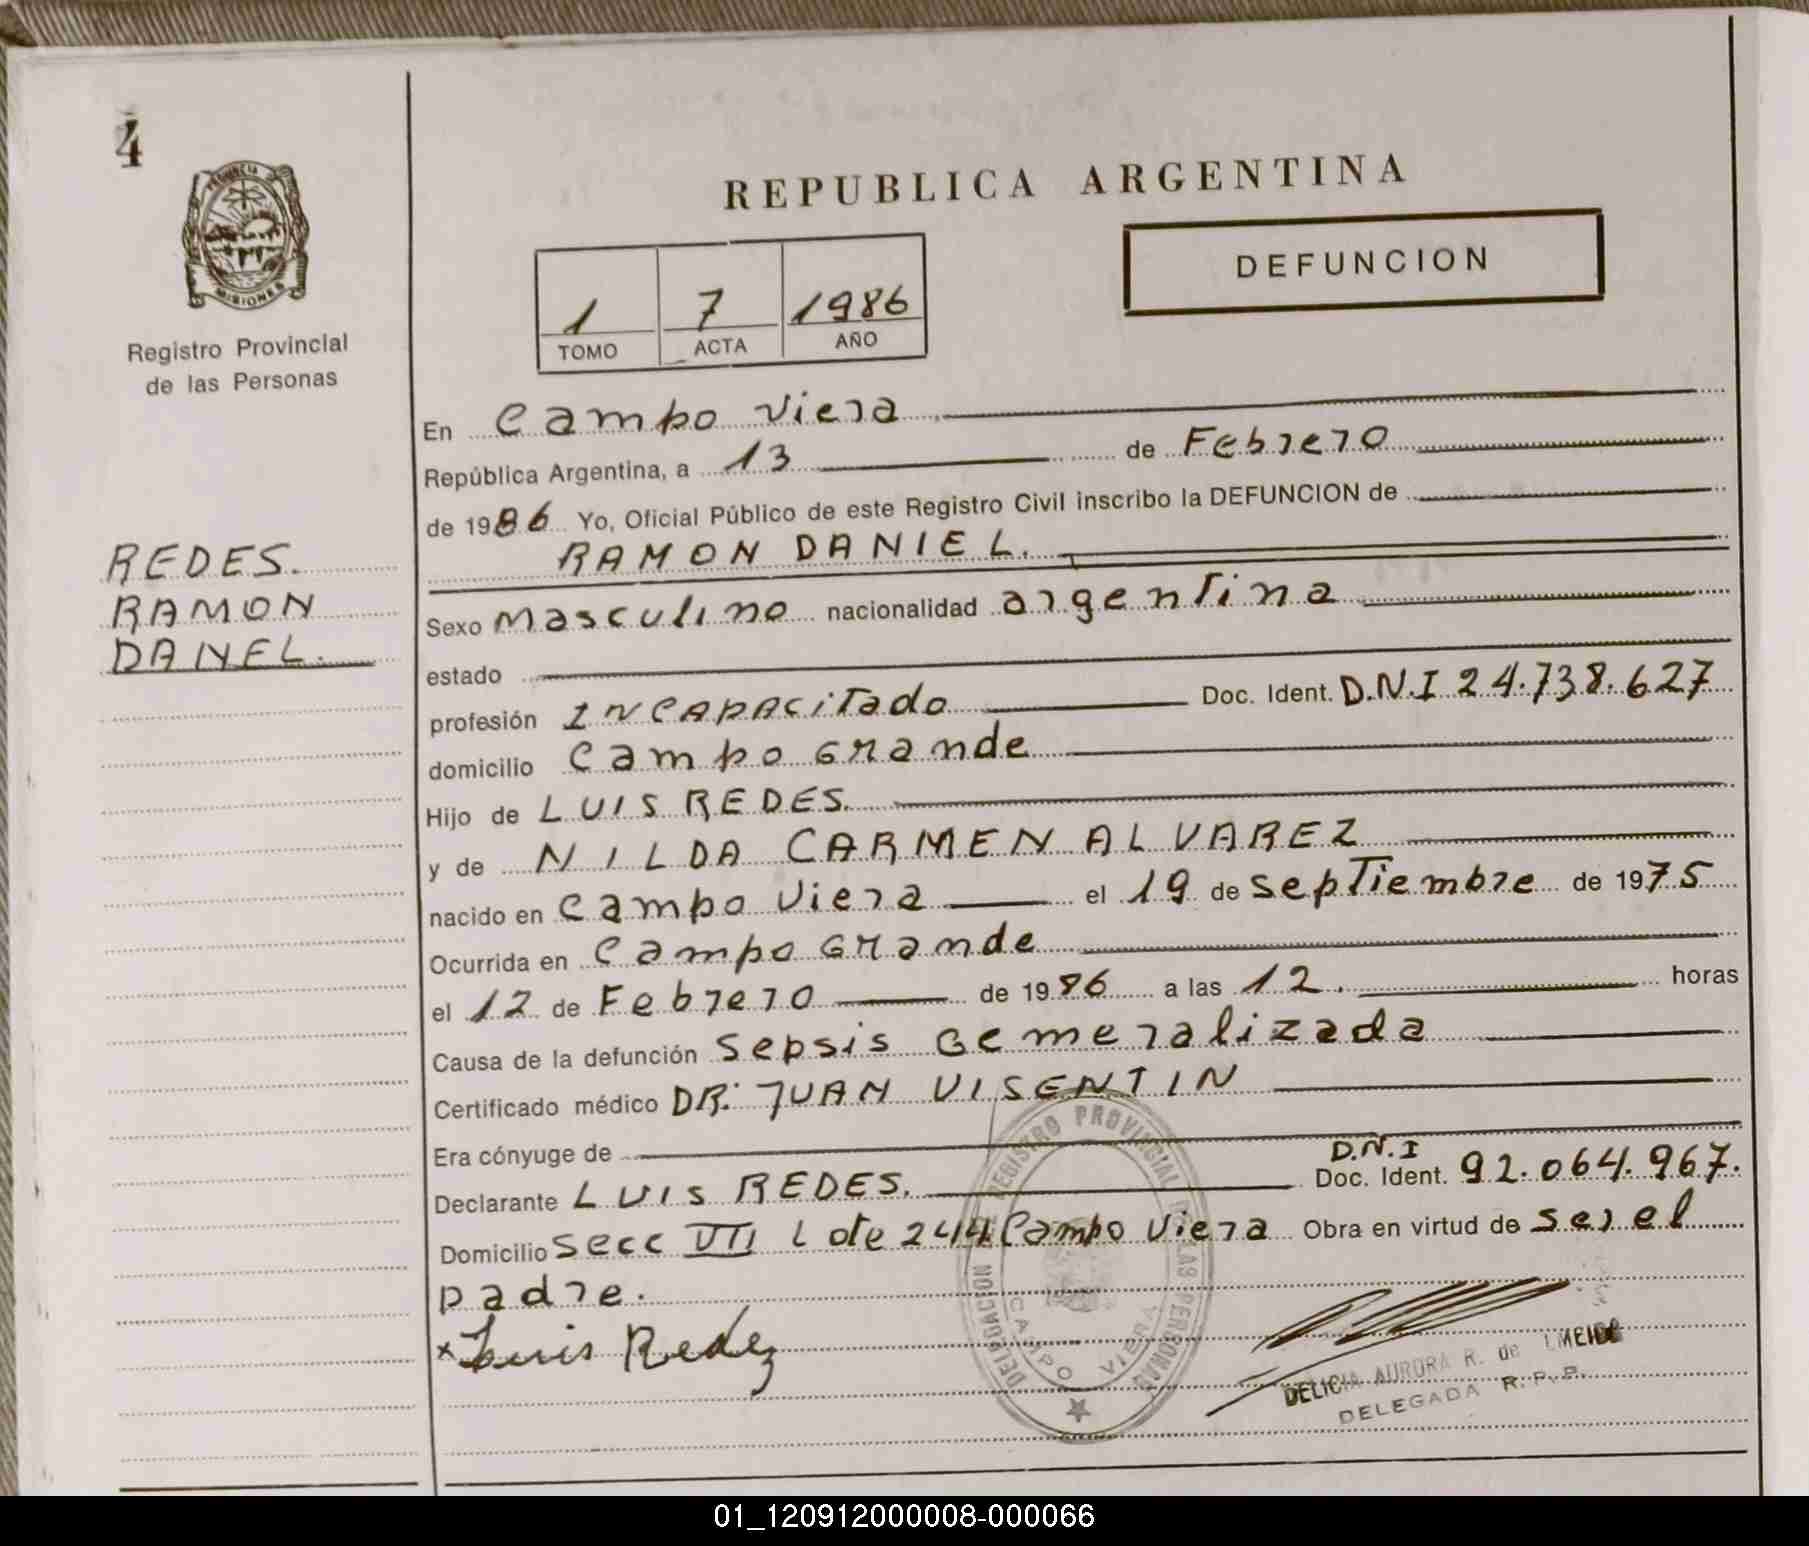 4
PROVINCIA
MISIONES
Registro Provincial
de las Personas
REDES.
RAMON
DANIEL.
REPUBLICA ARGENTINA
DEFUNCION
1 7 1986
TOMO ACTA AÑO
En Campo Viera
República Argentina, a 13 de Febrero
de 1986 Yo, Oficial Público de este Registro Civil inscribo la DEFUNCION de
RAMON DANIEL.
Sexo masculino nacionalidad argentina
estado
profesión INCAPACITADO Doc. Ident. D.N.I 24.738.627
domicilio Campo Grande
Hijo de LUIS REDES.
y de NILDA CARMEN ALVAREZ
nacido en Campo Viera el 19 de septiembre de 1975
Ocurrida en Campo Grande
el 12 de Febrero de 1986 a las 12. horas
Causa de la defunción sepsis Generalizada
Certificado médico DR. JUAN VISENTIN
Era cónyuge de
Declarante LUIS REDES. Doc. Ident. D.N.I 92.064.967.
Domicilio Secc VII Lote 244 Campo Viera Obra en virtud de ser el
padre.
x Luis Redez
DELEGACION REGISTRO PROVINCIAL DE LAS PERSONAS
CAMPO VIERA
DELICIA AURORA R. de
DELEGADA R.P.P.
01_120912000008-000066